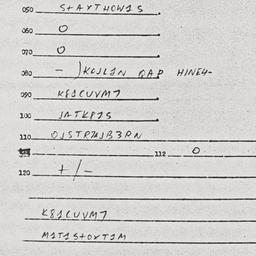 050 S+AYTHOW1S.
060 O
070 O.
080 - )KCJL1N QAP HINE4-
090 K81CUVM7.
100 JNTKP1S.
110 OJSTRMJB3RN
112 O.
120 +/-
K81CUVM7
M1T1S+OVT1M